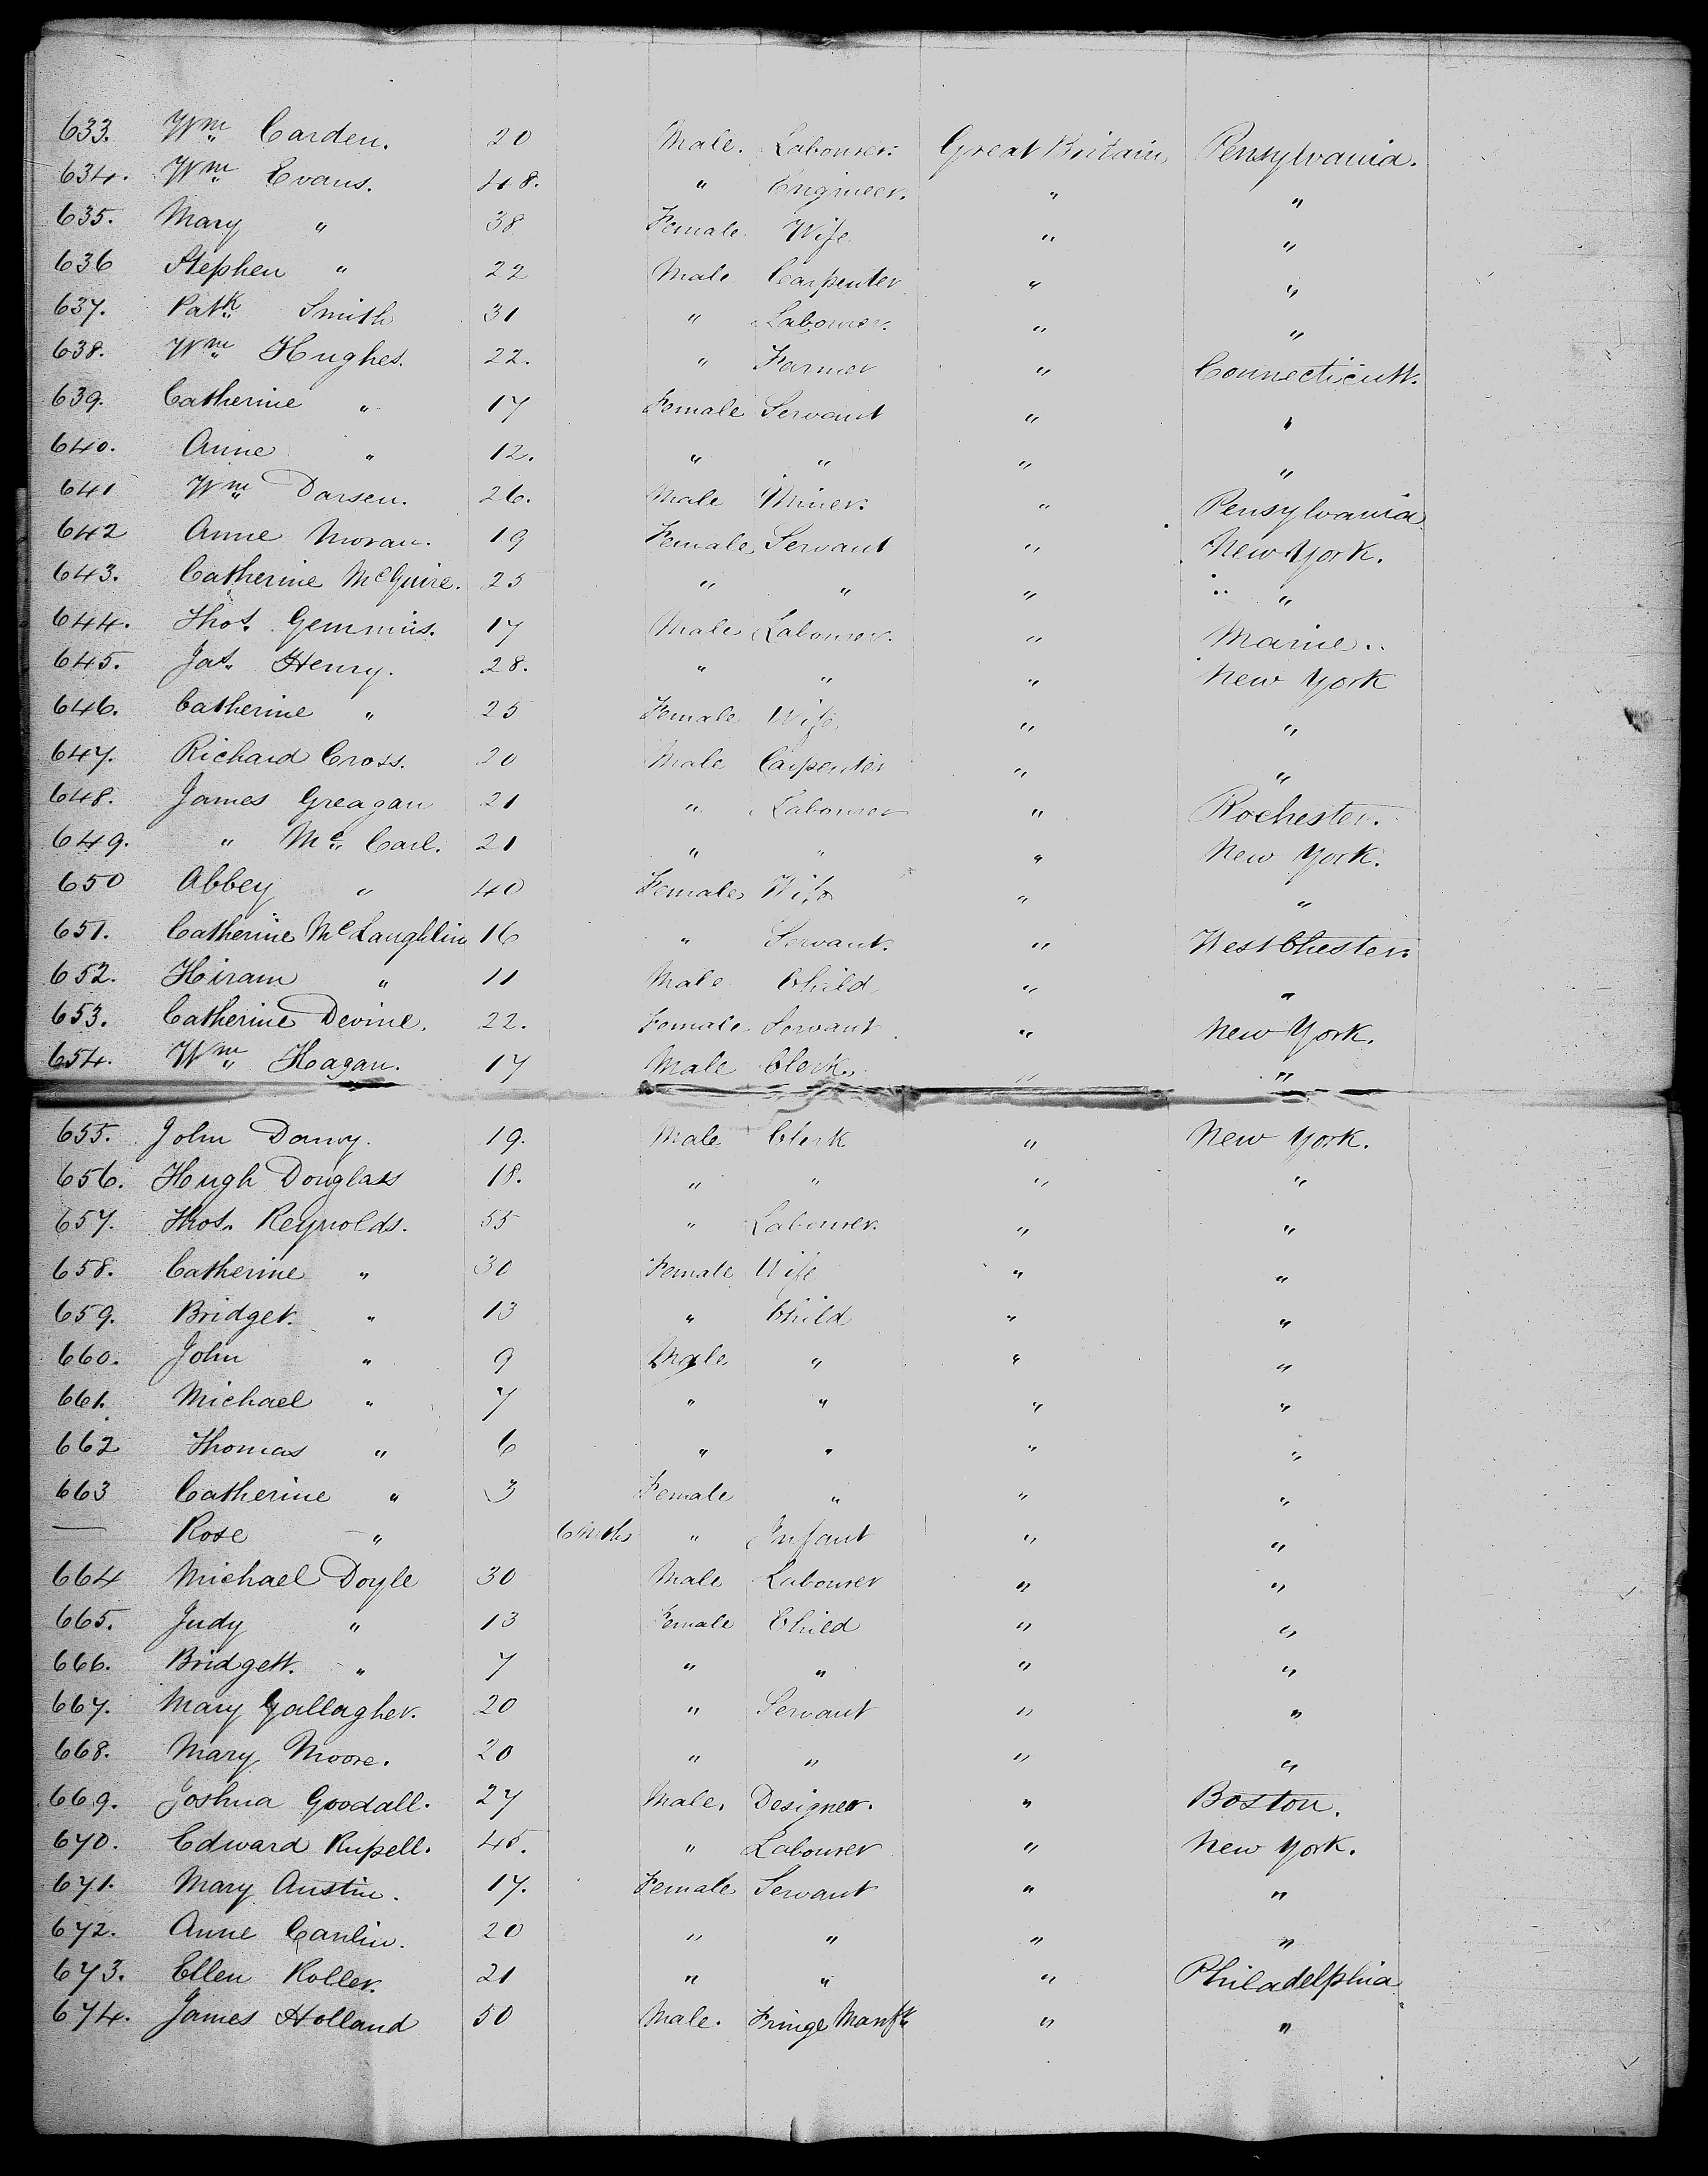 633. Wm Carden. 20 Male. Labourer. Great Britain Pensylvania.
634. Wm Evans. 48. " Engineer. " "
635. Mary " 38 Female Wife " "
636 Stephen " 22 Male Carpenter " "
637. Patk Smith 31 " Labourer. " "
638. Wm Hughes. 22. " Farmer " Connecticutt.
639. Catherine " 17 Female Servant " "
640. Anne " 12. " " " "
641 Wm Darsen. 26. Male Miner. " Pensylvania
642 Anne Moran. 19 Female Servant " New York.
643. Catherine McGuire. 25 " " " "
644. Thos. Gemmins. 17 Male Labourer. " Maine..
645. Jas. Henry. 28. " " " New York
646. Catherine " 25 Female Wife " "
647. Richard Cross. 20 Male Carpenter " "
648. James Greagan 21 " Labourer " Rochester.
649. " Mc Carl. 21 " " " New York.
650 Abbey " 40 Female Wife " "
651. Catherine McLaughlin 16 " Servant. " West Chester.
652. Hiram " 11 Male Child " "
653. Catherine Devine. 22. Female Servant " New York.
654. Wm Hagan. 17 Male Clerk. " "
655. John 19. Male Clerk " New York.
656. Hugh Douglass 18. " " " "
657. Thos. Reynolds. 55 " Labourer. " "
658. Catherine " 30 Female Wife " "
659. Bridget. " 13 " Child " "
660. John " 9 Male " " "
661. Michael " 7 " " " "
662 Thomas " 6 " " " "
663 Catherine " 3 Female " " "
— Rose " 6 mths " Infant " "
664 Michael Doyle 30 Male Labourer " "
665. Judy " 13 Female Child " "
666. Bridgett. " 7 " " " "
667. Mary Gallagher. 20 " Servant " "
668. Mary Moore. 20 " " " "
669. Joshua Goodall. 27 Male. Designer. " Boston.
670. Edward Russell. 45. " Labourer " New York.
671. Mary Austin. 17. Female Servant " "
672. Anne Canlin. 20 " " " "
673. Ellen Roller. 21 " " " Philadelphia
674. James Holland 50 Male. Fringe " "